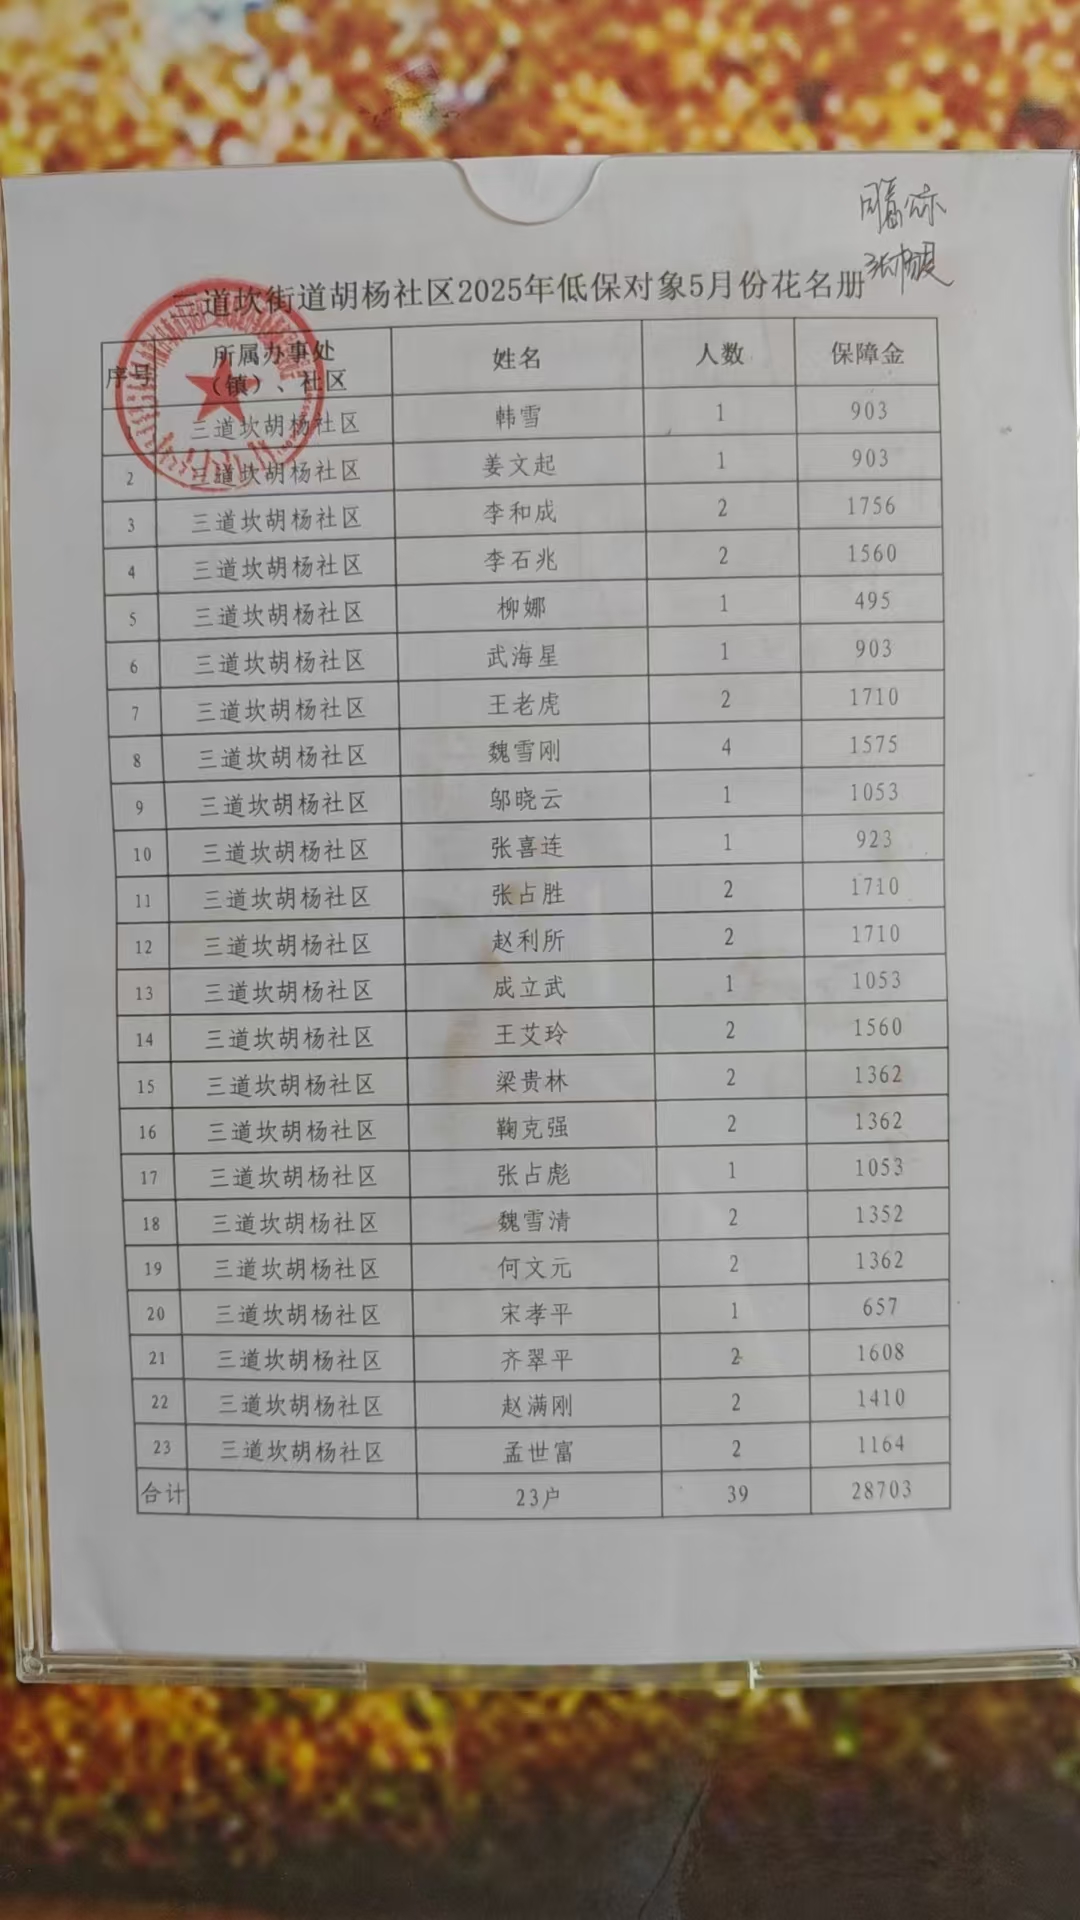 张海波
三道坎街道胡杨社区2025年低保对象5月份花名册
序号 所属办事处（镇）、社区 姓名 人数 保障金
1 三道坎胡杨社区 韩雪 1 903
2 三道坎胡杨社区 姜文起 1 903
3 三道坎胡杨社区 李和成 2 1756
4 三道坎胡杨社区 李石兆 2 1560
5 三道坎胡杨社区 柳娜 1 495
6 三道坎胡杨社区 武海星 1 903
7 三道坎胡杨社区 王老虎 2 1710
8 三道坎胡杨社区 魏雪刚 4 1575
9 三道坎胡杨社区 邬晓云 1 1053
10 三道坎胡杨社区 张喜连 1 923
11 三道坎胡杨社区 张占胜 2 1710
12 三道坎胡杨社区 赵利所 2 1710
13 三道坎胡杨社区 成立武 1 1053
14 三道坎胡杨社区 王艾玲 2 1560
15 三道坎胡杨社区 梁贵林 2 1362
16 三道坎胡杨社区 鞠克强 2 1362
17 三道坎胡杨社区 张占彪 1 1053
18 三道坎胡杨社区 魏雪清 2 1352
19 三道坎胡杨社区 何文元 2 1362
20 三道坎胡杨社区 宋孝平 1 657
21 三道坎胡杨社区 齐翠平 2 1608
22 三道坎胡杨社区 赵满刚 2 1410
23 三道坎胡杨社区 孟世富 2 1164
合计 23户 39 28703